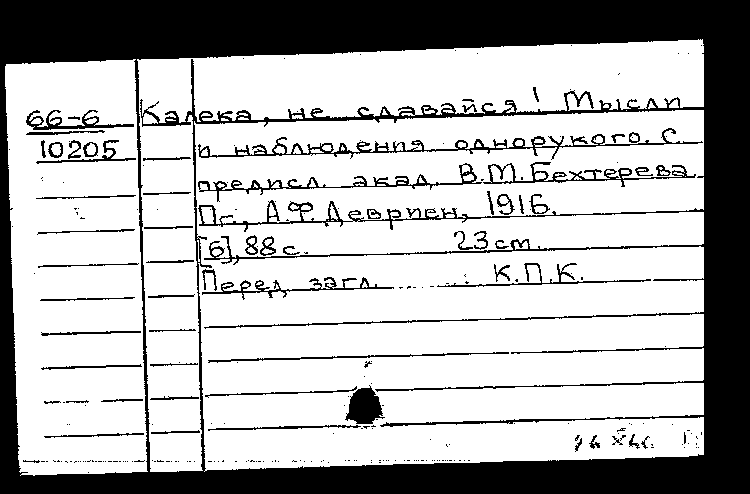 66-6 Калека, не сдавайся! Мысли
10205 и наблюдения однорукого. С
предисл. акад. В.М.Бехтерева
Пг., А.Ф.Девриен, 1916.
[6], 88 с. 23 см.
Перед загл. : К.П.К.